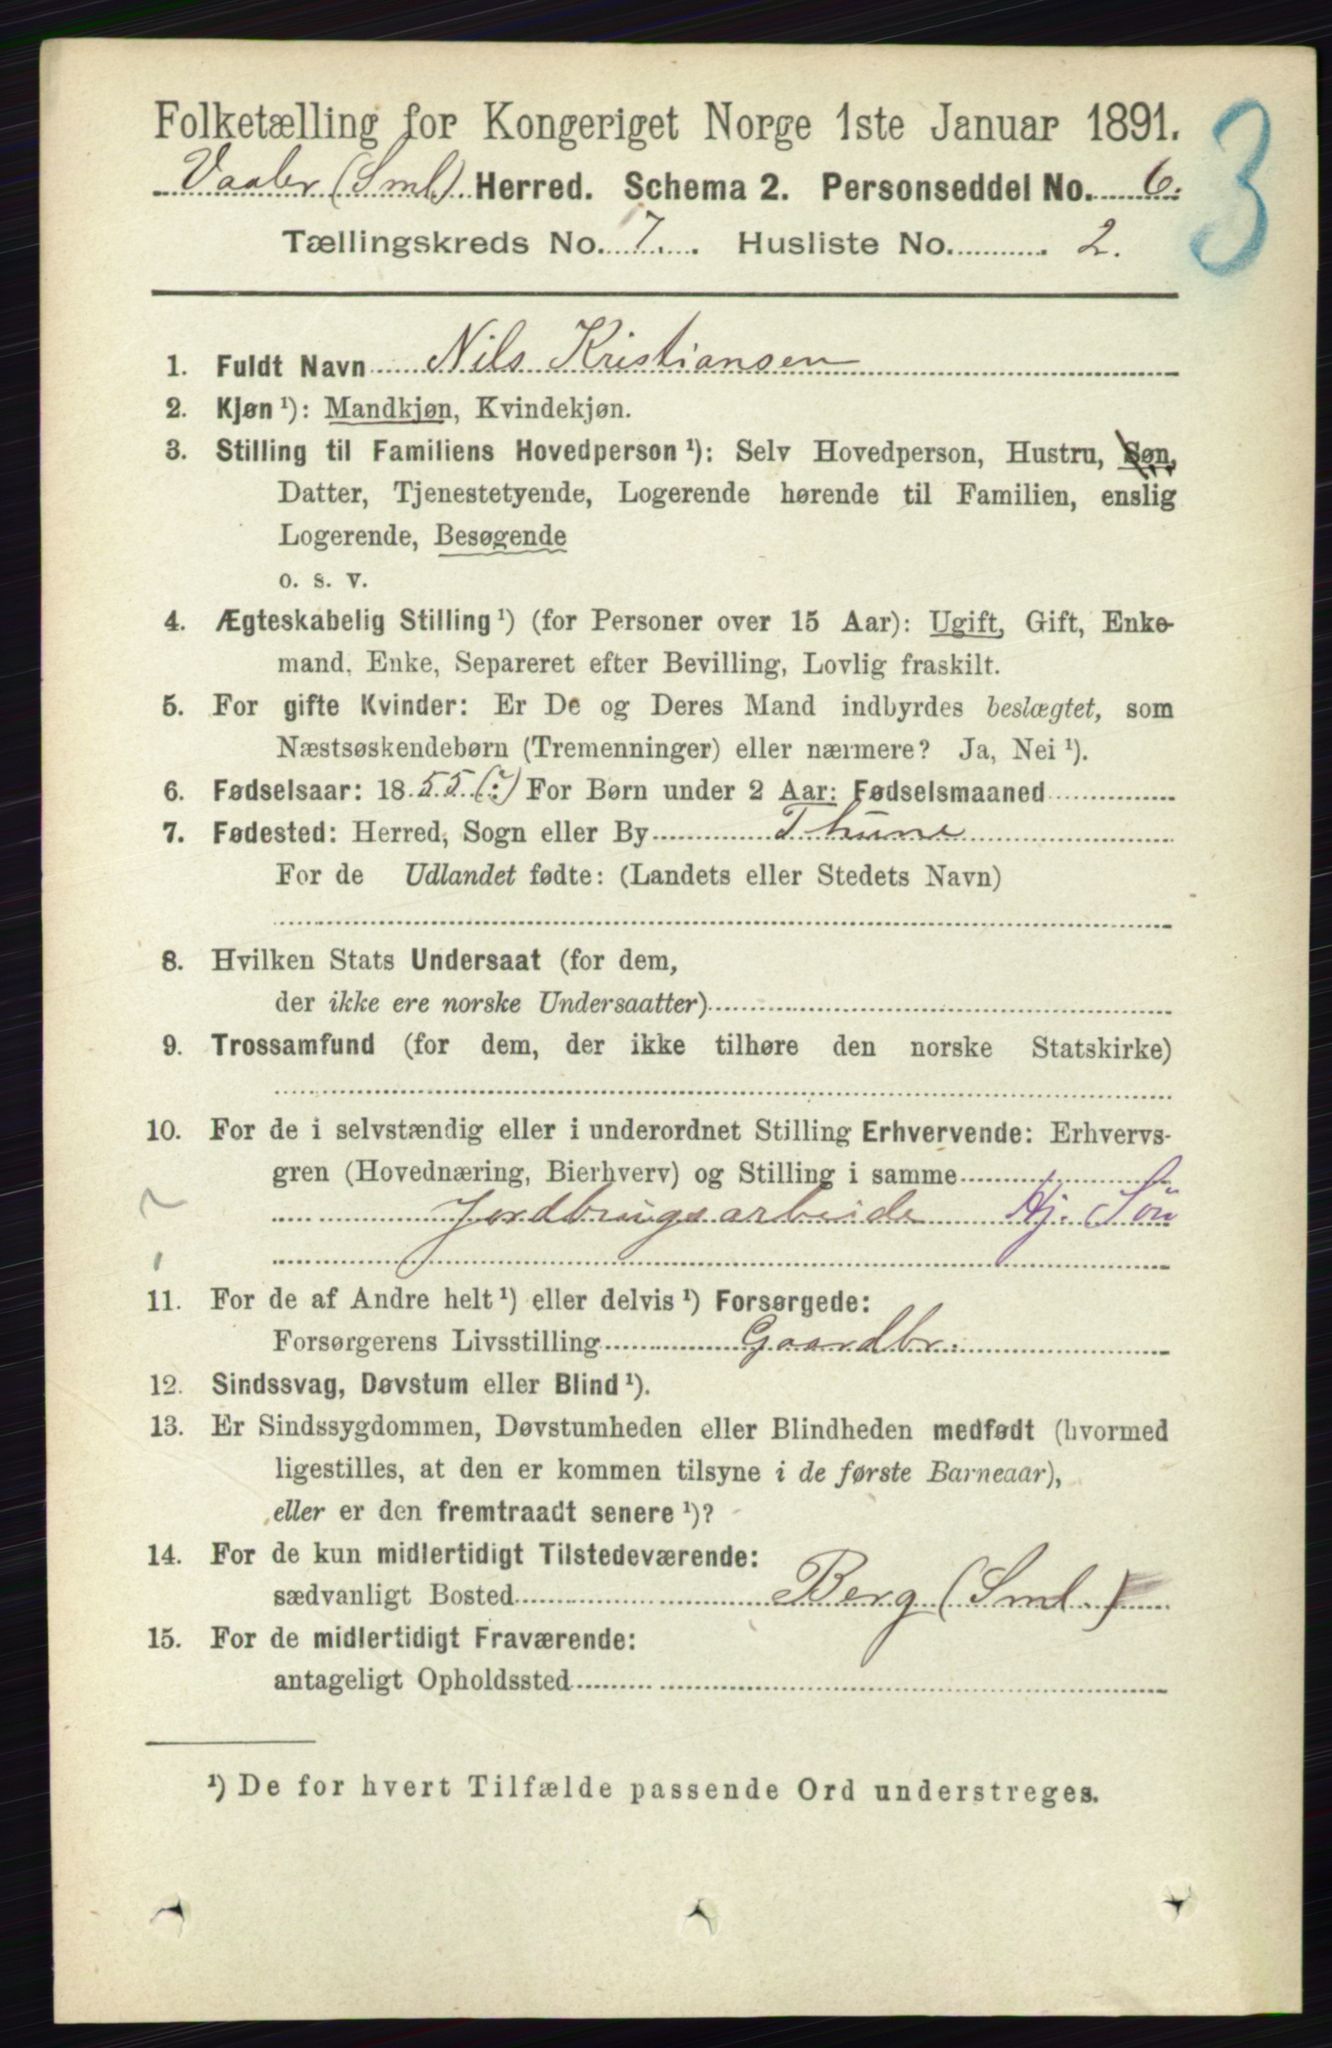 Folketælling for Kongeriget Norge 1ste Januar 1891.
3
Vaaler (Sml.) Herred. Schema 2. Personseddel No. 6.
Tællingskreds No. 7. Husliste No. 2.
1. Fuldt Navn Nils Kristiansen
2. Kjøn ¹): Mandkjøn, Kvindekjøn.
3. Stilling til Familiens Hovedperson ¹): Selv Hovedperson, Hustru, Søn,
Datter, Tjenestetyende, Logerende hørende til Familien, enslig
Logerende, Besøgende
o. s. v.
4. Ægteskabelig Stilling ¹) (for Personer over 15 Aar): Ugift, Gift, Enke-
mand, Enke, Separeret efter Bevilling, Lovlig fraskilt.
5. For gifte Kvinder: Er De og Deres Mand indbyrdes beslægtet, som
Næstsøskendebørn (Tremenninger) eller nærmere? Ja, Nei ¹).
6. Fødselsaar: 1855 (?) For Børn under 2 Aar: Fødselsmaaned
7. Fødested: Herred, Sogn eller By Thune
For de Udlandet fødte: (Landets eller Stedets Navn)
8. Hvilken Stats Undersaat (for dem,
der ikke ere norske Undersaatter)
9. Trossamfund (for dem, der ikke tilhøre den norske Statskirke)
10. For de i selvstændig eller i underordnet Stilling Erhvervende: Erhvervs-
gren (Hovednæring, Bierhverv) og Stilling i samme
Jordbrugsarbeide Hj. Søn
11. For de af Andre helt ¹) eller delvis ¹) Forsørgede:
Forsørgerens Livsstilling Gaardbr.
12. Sindssvag, Døvstum eller Blind ¹).
13. Er Sindssygdommen, Døvstumheden eller Blindheden medfødt (hvormed
ligestilles, at den er kommen tilsyne i de første Barneaar),
eller er den fremtraadt senere ¹)?
14. For de kun midlertidigt Tilstedeværende:
sædvanligt Bosted Berg (Sml.)
15. For de midlertidigt Fraværende:
antageligt Opholdssted
¹) De for hvert Tilfælde passende Ord understreges.